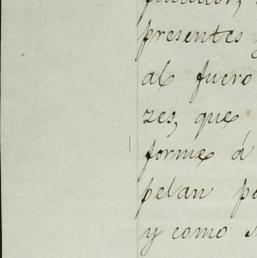 presentes y
al fuero
zes, que
forme á
pelan pe
y como s